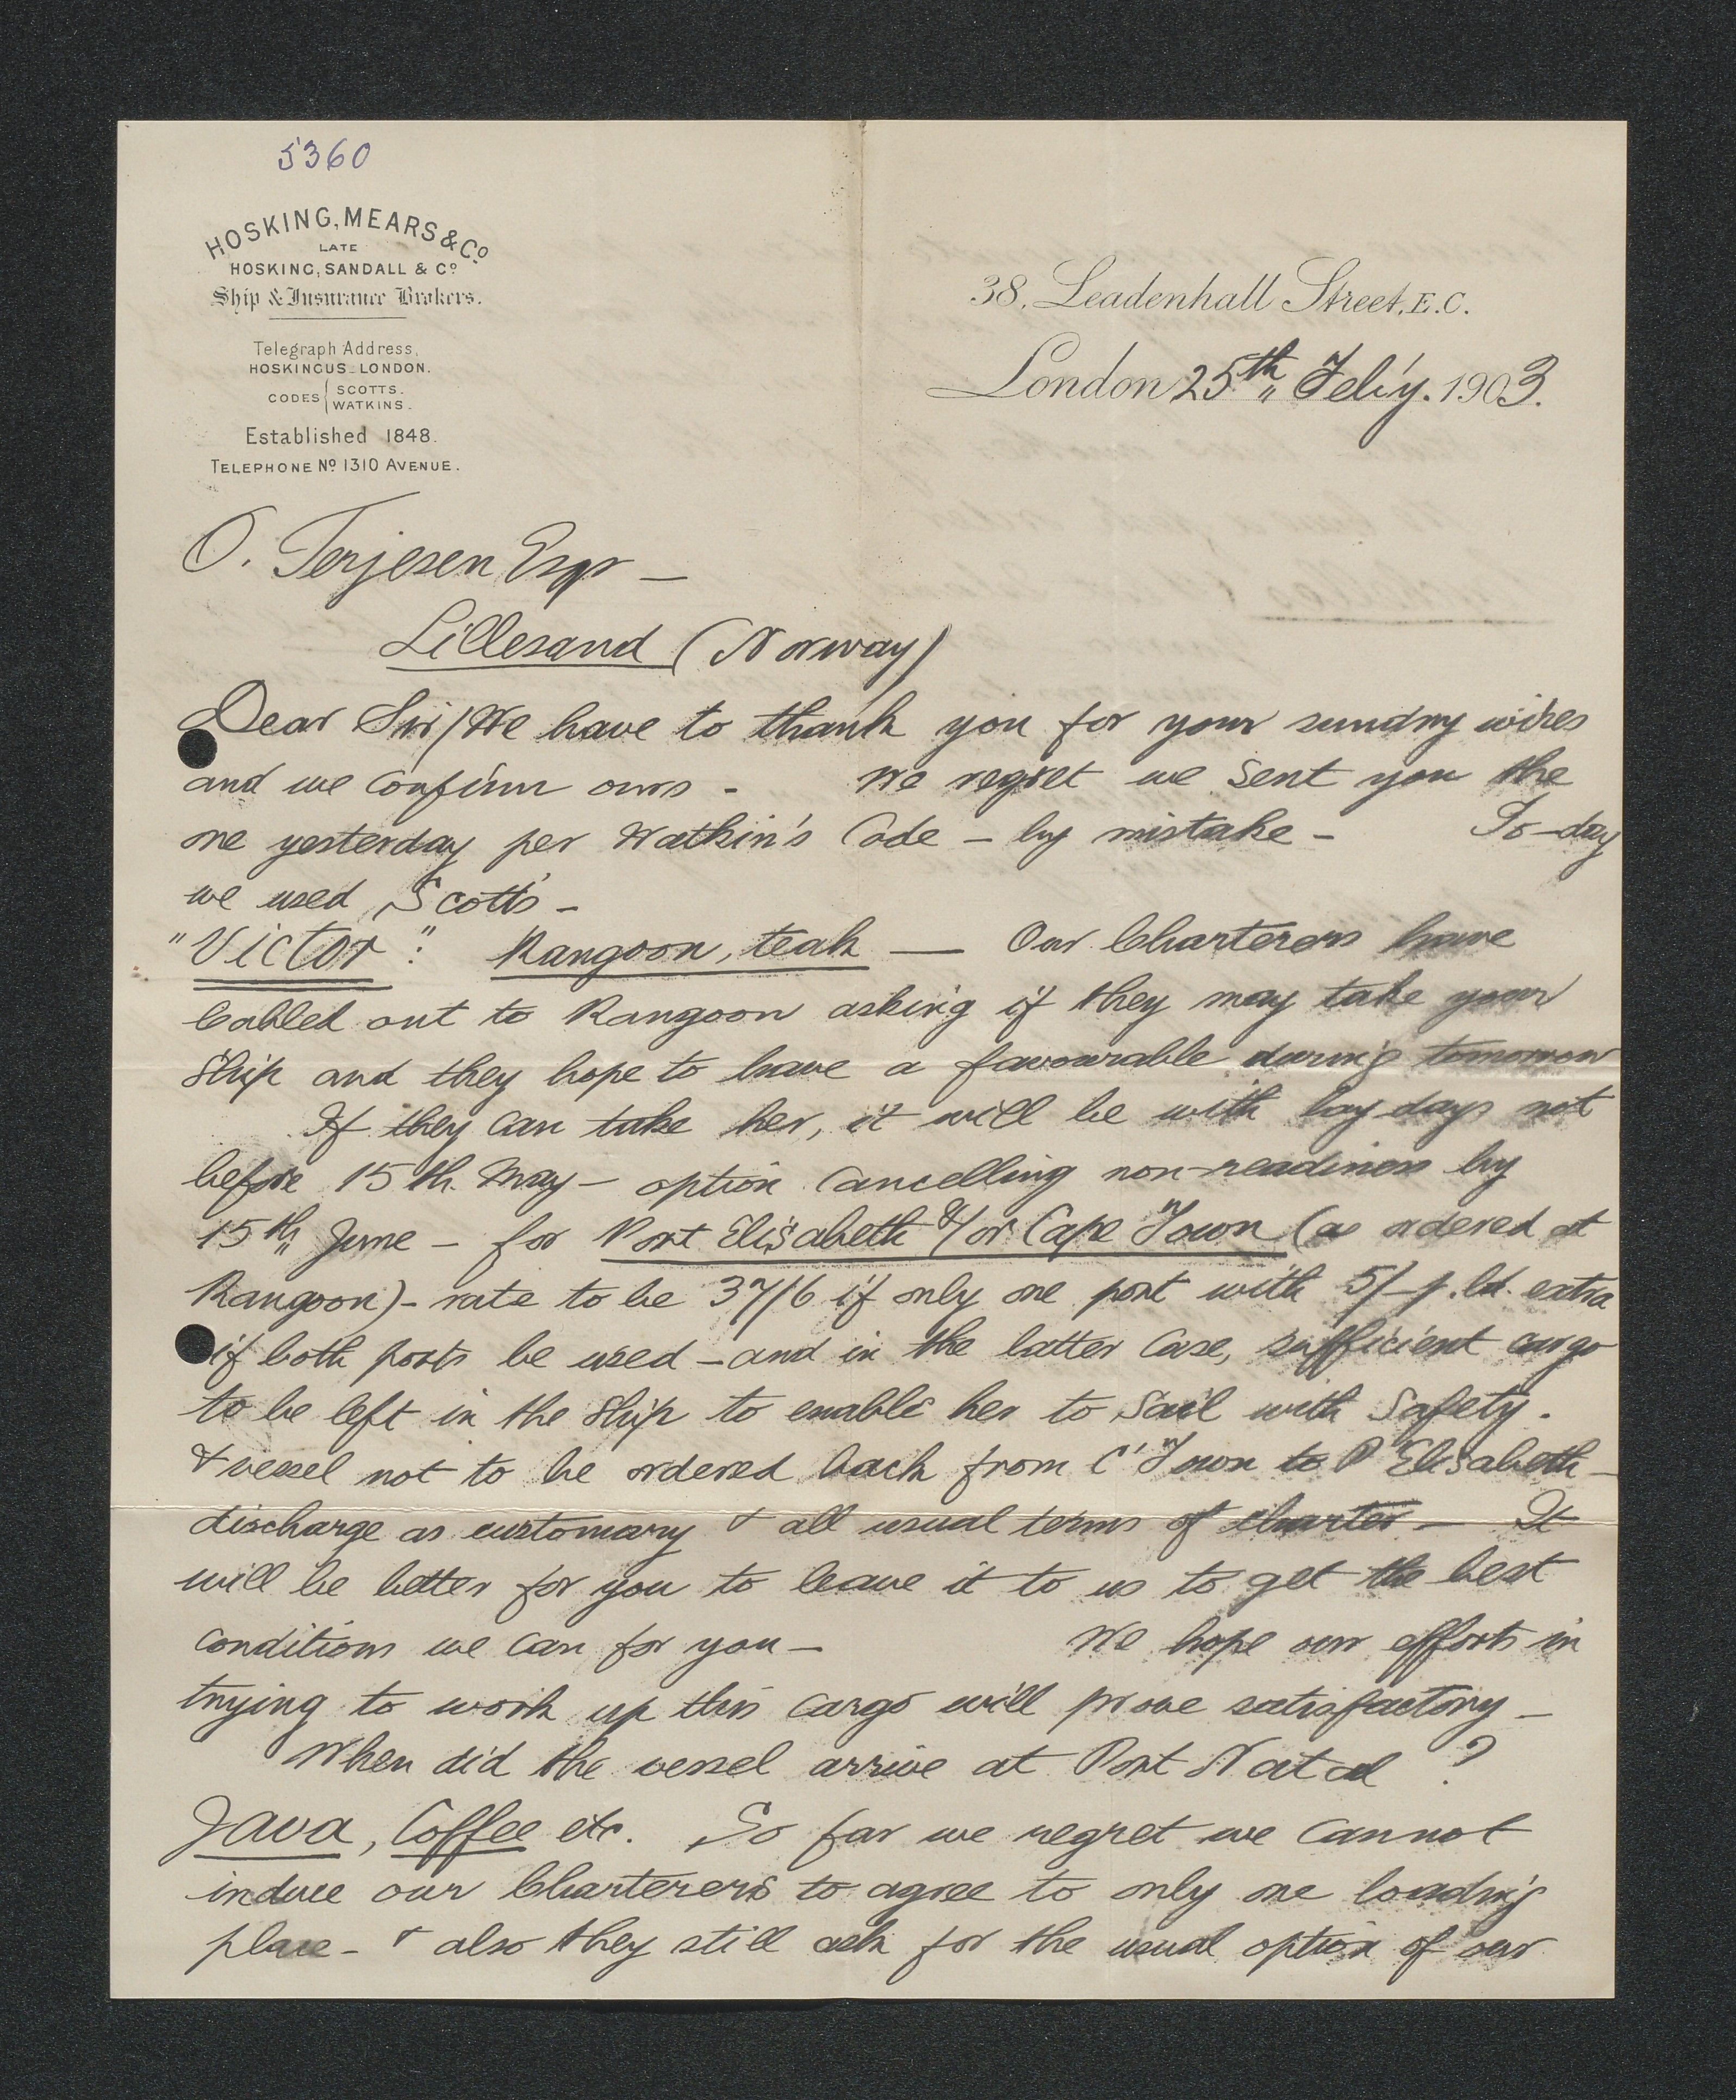 5360
HOSKING, MEARS & Co.
LATE
HOSKING, SANDALL & Co.
Ship & Insurance Brokers.
Telegraph Address,
HOSKINGUS-LONDON.
CODES { SCOTTS.
WATKINS.
Established 1848.
TELEPHONE No 1310 AVENUE.
38, Leadenhall Street, E.C.
London 25th Feb'y. 1903.
O. Terjesen Esqr —
Lillesand (Norway)
Dear Sir/ We have to thank you for your sundry wires
and we confirm ours - We regret we sent you the
one yesterday per Watkin's Code - by mistake - To-day
we used Scott's -
"Victor": Rangoon, teak — Our Charterers have
Cabled out to Rangoon asking if they may take your
Ship and they hope to have a favourable during tomorrow
If they can take her, it will be with lay days not
before 15th May - option Cancelling non-readiness by
15th June - for Port Elisabeth &/or Cape Town (as ordered at
Rangoon) - rate to be 37/6 if only one port with 5/- p. ld. extra
if both ports be used - and in the latter Case, sufficient cargo
to be left in the Ship to enable her to Sail with Safety.
& vessel not to be ordered back from C' Town to P Elisabeth -
discharge as customary & all usual terms of charter - It
will be better for you to leave it to us to get the best
conditions we can for you - We hope our efforts in
trying to work up this cargo will prove satisfactory -
When did the vessel arrive at Port Natal ?
Java, Coffee etc. So far we regret we cannot
induce our Charterers to agree to only one loading
place - & also they still ask for the usual option of our